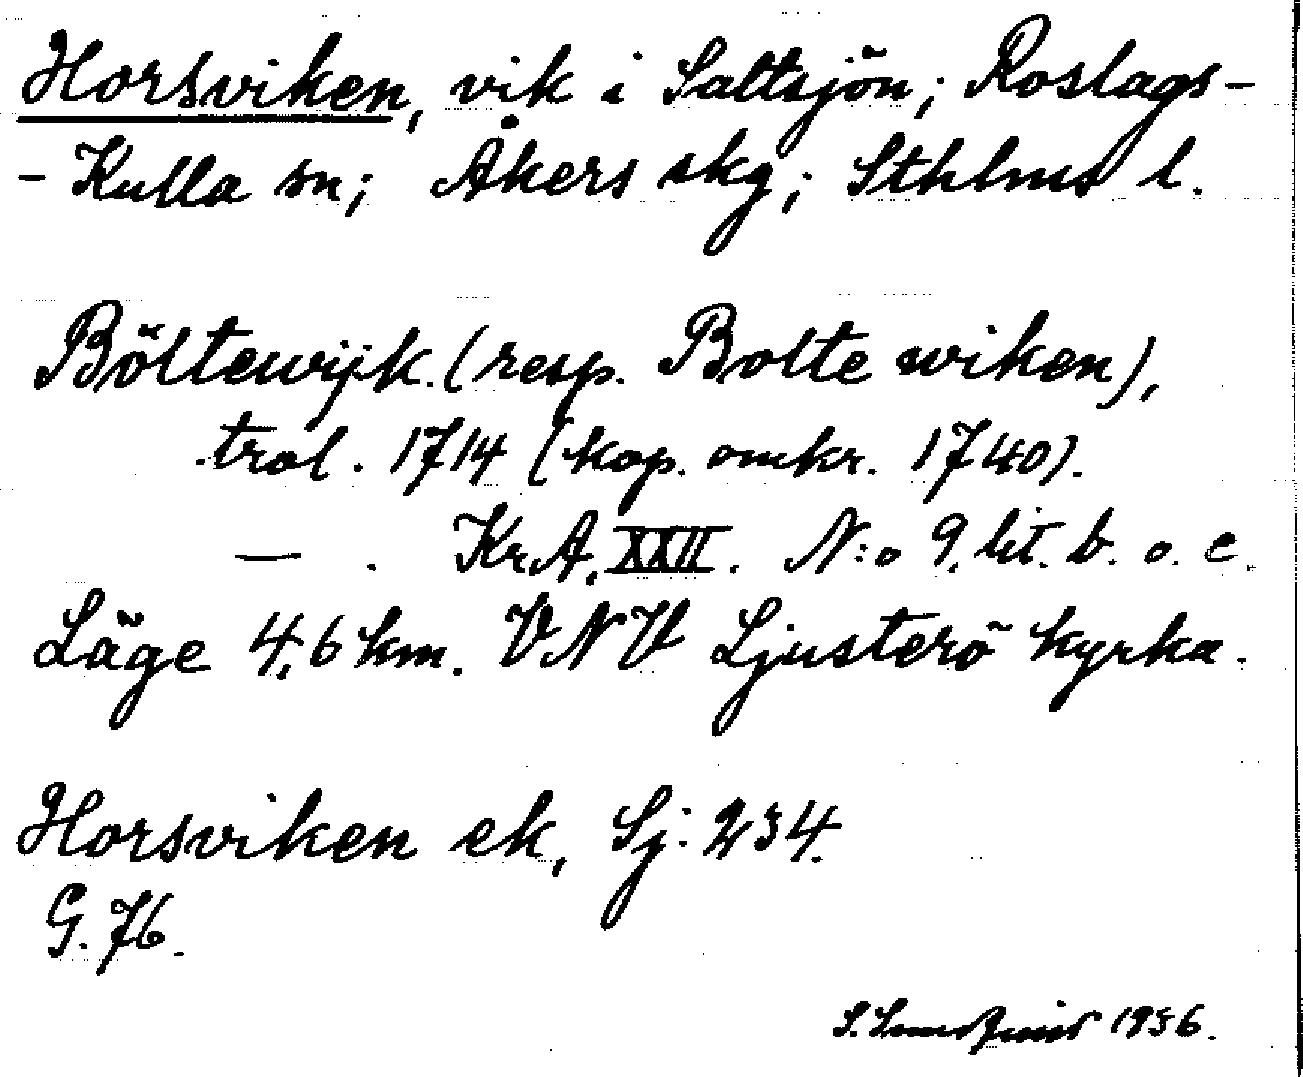 Horsviken, vik i Saltsjön; Roslags-
- Kulla sn; Åkers skg; Sthlms l.
Böltewijk. (resp. Bolte wiken),
trol. 1714 (kop. omkr. 1740).
— . Kr.A. XXII. N:o 9. lit. b. o. c.
Läge 4,6 km. VNV Ljusterö kyrka.
Horsviken ek, Sj: 234.
G. 76.
S. 1936.